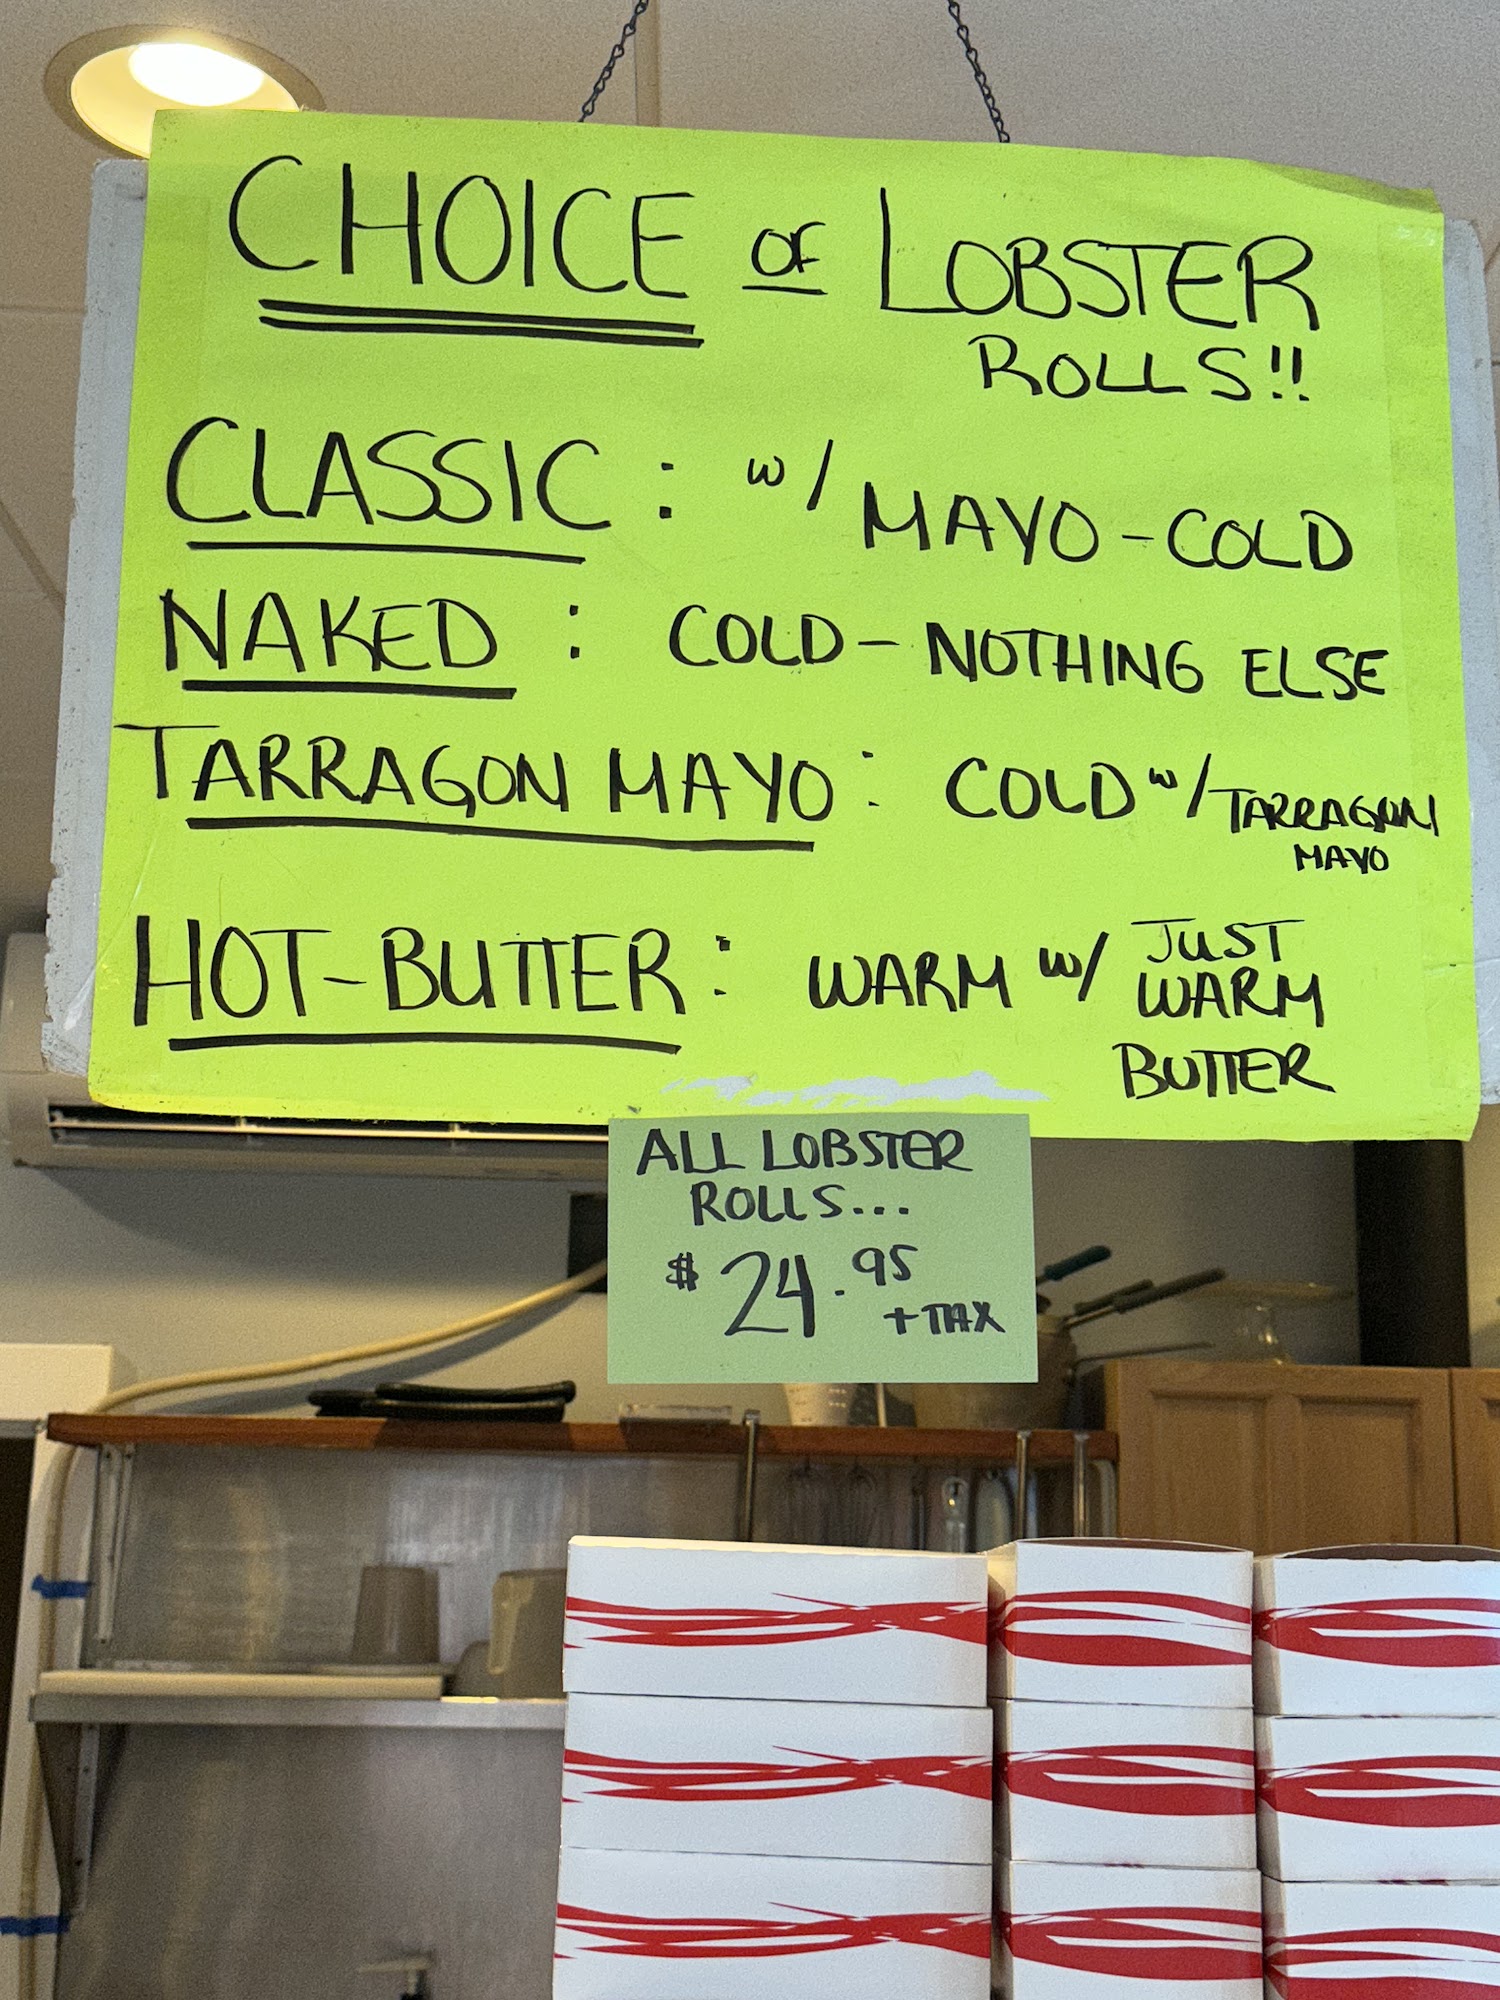 CHOICE OF LOBSTER
ROLLS!!
CLASSIC: w/ MAYO-COLD
NAKED: COLD-NOTHING ELSE
TARRAGON MAYO: COLD w/ TARRAGON
MAYO
HOT-BUTTER: WARM w/ JUST
WARM
BUTTER
ALL LOBSTER
ROLLS...
$24.95
+TAX